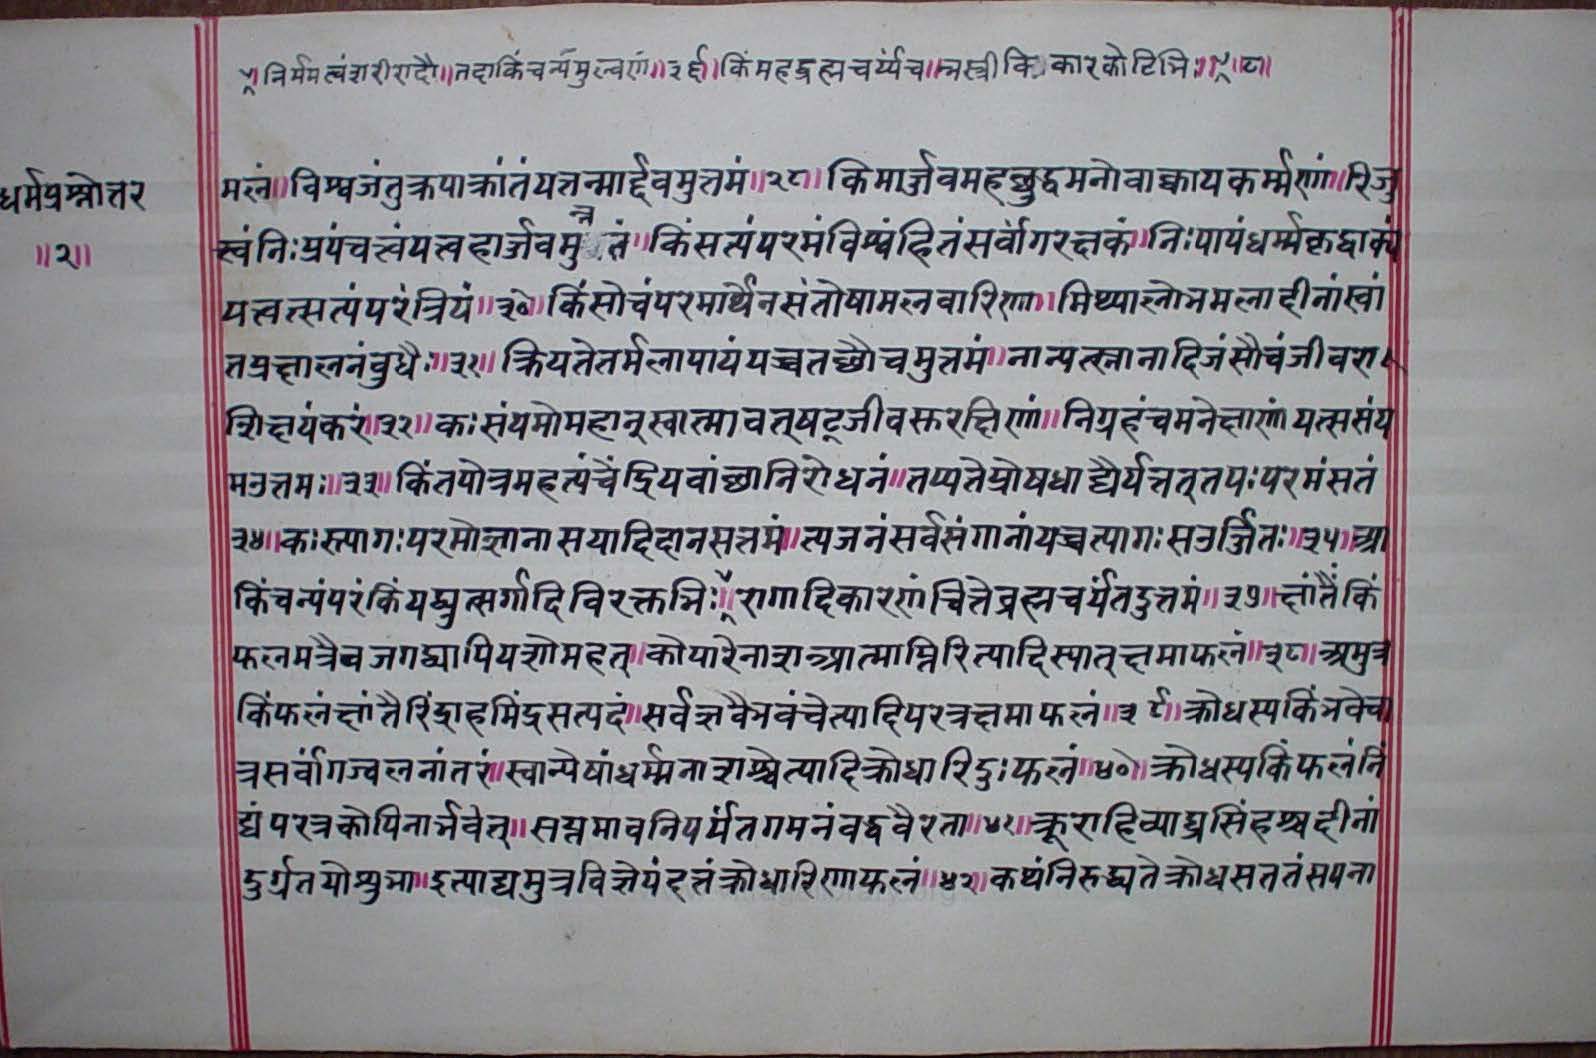 निर्ममत्वंशरीरादौ॥तदाकिंचन्यमुल्वणं॥३६॥किंमहद्ब्रह्मचर्य्यच॥स्त्रीकि कारकोटिभिः॥८॥
धर्मप्रश्नोत्तर
॥२॥
मलं॥विश्वजंतुक्रपाक्रांतंयत्तन्मार्द्दवमुत्तमं॥२८॥किमार्ज्जवमहछुद्धमनोवाक्कायकर्म्मणां॥रिजु
त्वंनिःप्रयंचत्वंयत्त्वहार्जवमुन्नतं॥किंसत्यंपरमंविश्वंहितंसर्वांगरक्षकं॥निःपायंधर्म्मकृद्वाक्यं
यत्तत्सत्यंपरंत्रियं॥३०॥किंसोचंपरमार्थेनसंतोषामलवारिणा॥मिथ्यालोभमलादीनांस्वां
तप्रक्षालनंबुधैः॥३१॥क्रियतेतर्मलापायंयच्चतछौचमुत्तमं॥नान्यत्स्नानादिजंसौचंजीवरा
शिक्षयंकरं॥३२॥कःसंयमोमहान्स्वात्मावत्षट्जीवस्तरक्षिणां॥निग्रहंचमनेक्षाणांयत्ससंय
मउत्तमः॥३३॥किंतपोत्रमहत्यंचेंद्रियवांछानिरोधनं॥तप्यतेप्रोषधाद्यैर्यत्तत्तपःपरमंसतं
३४॥कःस्त्यागःपरमोज्ञानासयादिदानसत्तमं॥त्यजनंसर्वसंगानांयच्चत्यागःसउर्ज्जितः॥३५॥आ
किंचन्यंपरंकिंयद्व्युत्सर्गादिविरक्तभिः॥रागादिकारणांचित्तेब्रह्मचर्यंतदुत्तमं॥३७॥क्षांतैकिं
फलमत्रैवजगद्व्यापियशोमहत्॥कोपारेनाशआत्माग्निरित्यादिस्यात्क्षमाफलं॥३८॥अमुत्र
किंफलंक्षांतैरिंद्राहमिंद्रसत्पदं॥सर्वज्ञवैभवंचेत्यादिपरत्रक्षमाफलं॥३९॥क्रोधस्यकिंभवेचा
त्रसर्वांगज्वलनांतरं॥स्वान्येषांधर्म्मनाशश्चेत्यादिक्रोधारिदुःफलं॥४०॥क्रोधस्यकिंफलंनिं
द्यंपरत्रकोपिनार्भवेत्॥सप्तमावनिपर्यंतगमनंवद्धवैरता॥४१॥क्रूराहिव्याघ्रसिंहश्चदीनां
दुर्ग्रतयोशुभा॥इत्याद्यमुत्रविज्ञेयंहत्तंक्रोधारिणाफलं॥४२॥कथंनिरुद्ध्यतेक्रोधसततंसयना